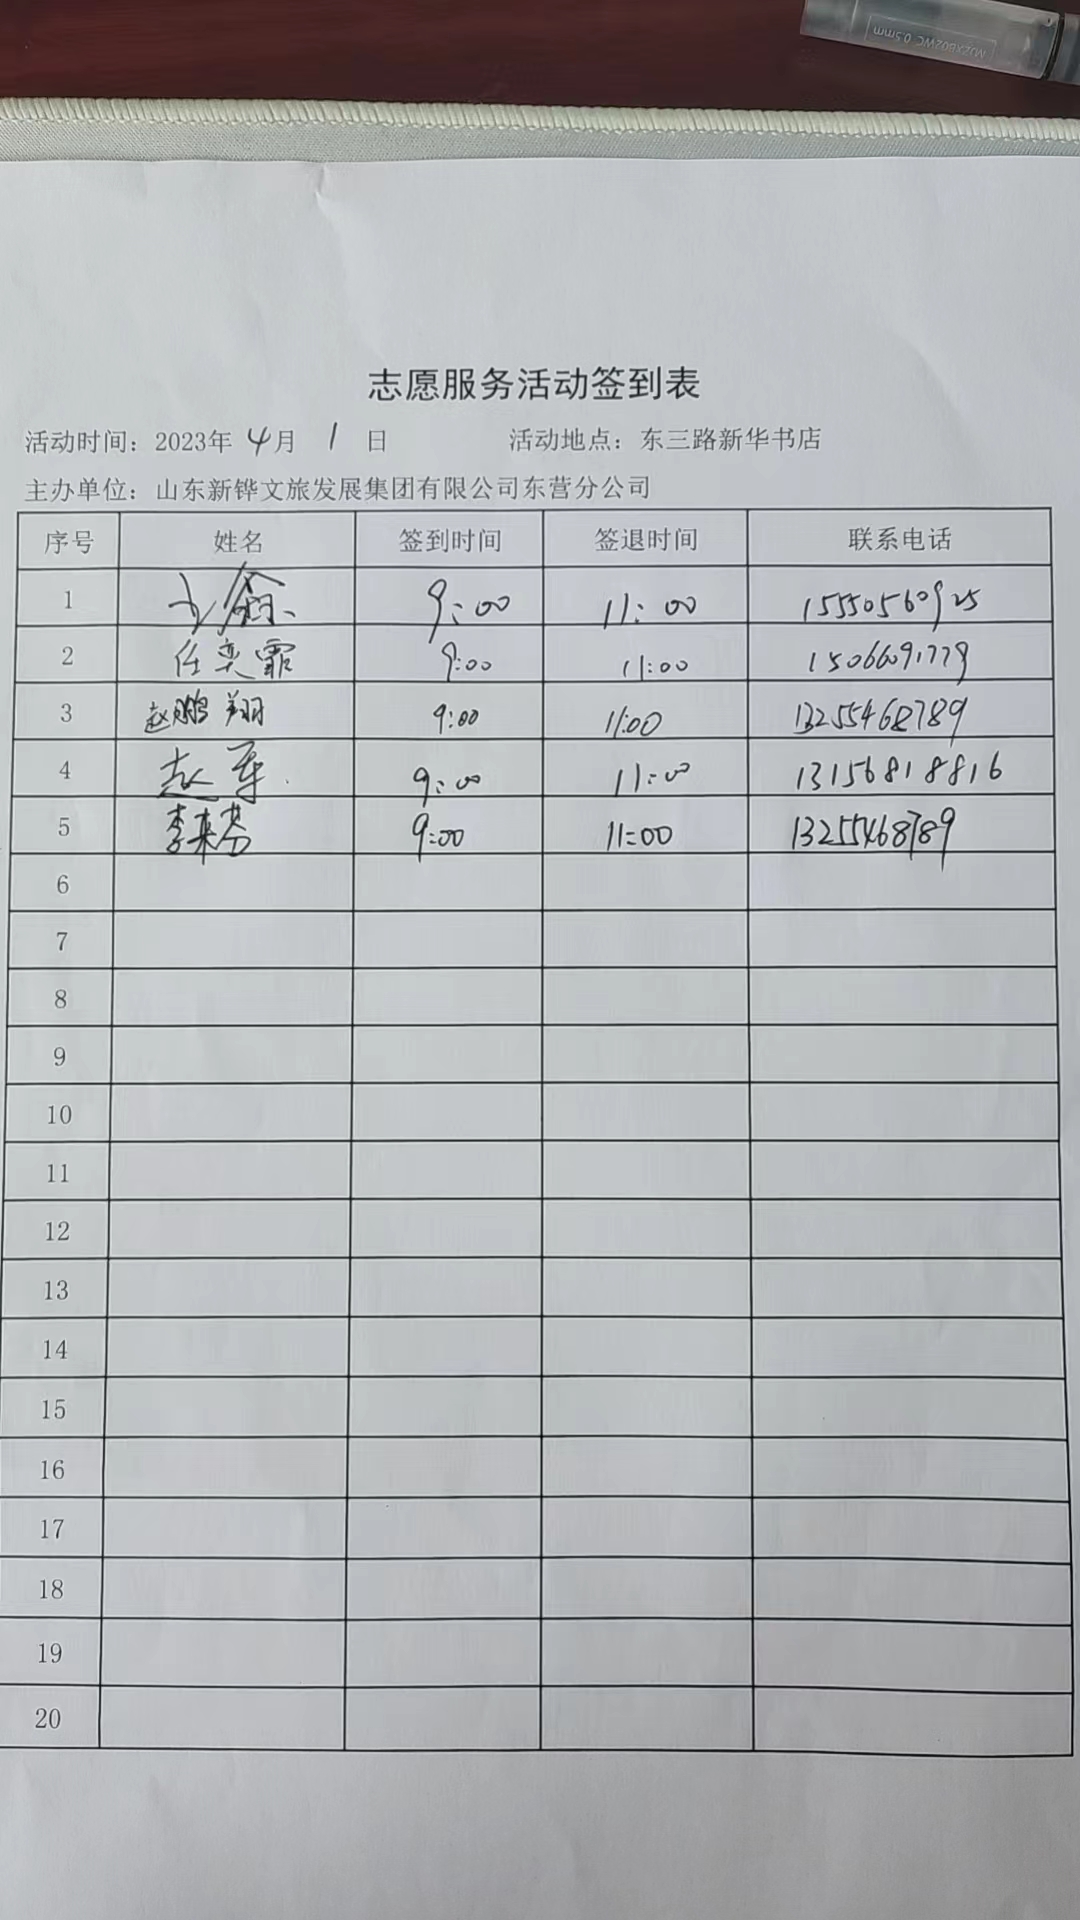 MJZXB02WC 0.5mm
志愿服务活动签到表
活动时间：2023年 4月 1 日 活动地点：东三路新华书店
主办单位：山东新铧文旅发展集团有限公司东营分公司
序号 姓名 签到时间 签退时间 联系电话
1 鑫 9:00 11:00 15550560925
2 任奕霏 9:00 11:00 15066091779
3 赵鹏翔 9:00 11:00 13255468789
4 赵军 9:00 11:00 13156818816
5 李来芬 9:00 11:00 13255468789
6
7
8
9
10
11
12
13
14
15
16
17
18
19
20